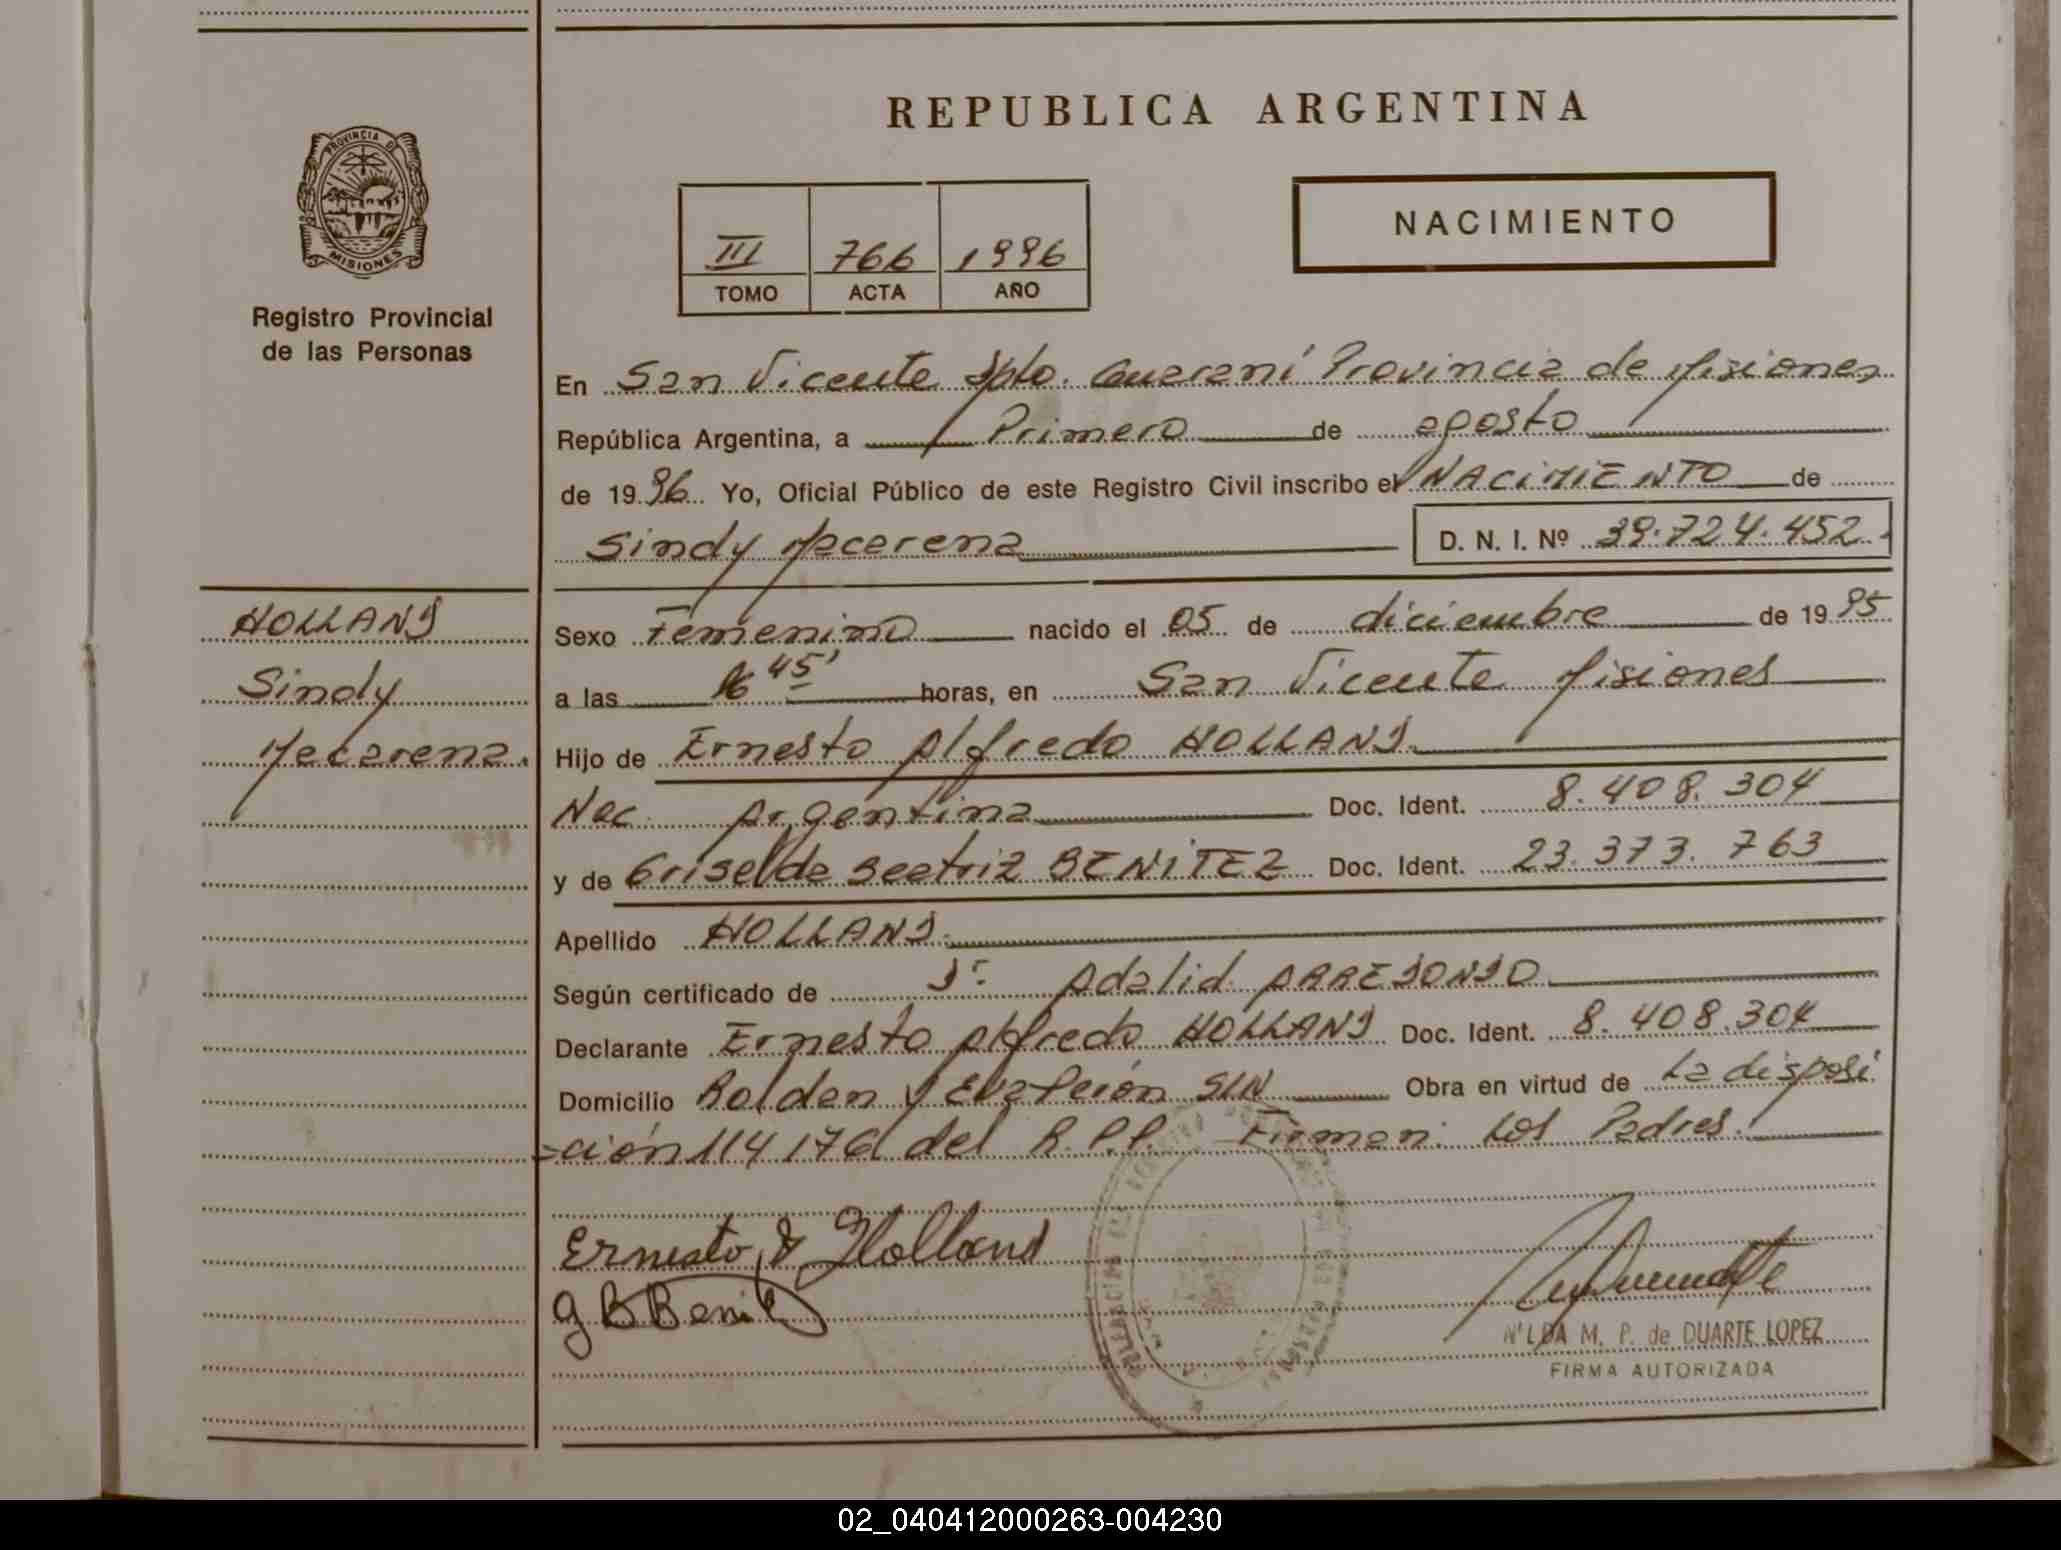 REPUBLICA ARGENTINA
PROVINCIA DE
MISIONES
Registro Provincial
de las Personas
III 766 1996
TOMO ACTA AÑO
NACIMIENTO
En San Vicente Dpto. Guaraní Provincia de Misiones
República Argentina, a Primero de agosto
de 1996 Yo, Oficial Público de este Registro Civil inscribo el NACIMIENTO de
Sindy Macarena D. N. I. Nº 39.724.452.
HOLLAND
Sindy
Macarena.
Sexo Femenino nacido el 05 de diciembre de 1995
a las 16 45' horas, en San Vicente Misiones
Hijo de Ernesto Alfredo HOLLAND.
Nac. Argentina Doc. Ident. 8.408.304
y de Griselda Beatriz BENITEZ Doc. Ident. 23.373.763
Apellido HOLLAND.
Según certificado de Dr. Adalid ARREDONDO
Declarante Ernesto Alfredo HOLLAND Doc. Ident. 8.408.304
Domicilio Roldan y S/N Obra en virtud de La disposi
=ción 114/76 del R.P.P. Firman: Los Padres.
Ernesto A Holland
G B Benitez
NILDA M. P. de DUARTE LOPEZ
FIRMA AUTORIZADA
02_040412000263-004230